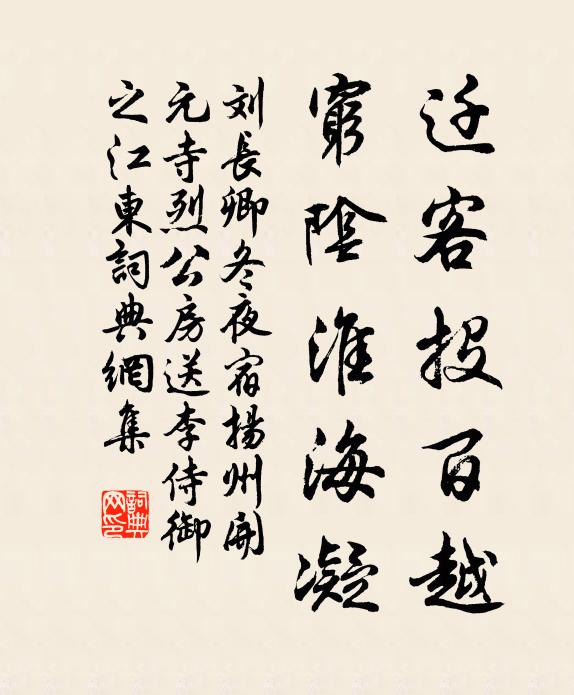 迁客投百越
窮陰淮海凝
刘長卿冬夜宿揚州開
元寺烈公房送李侍御
之江東詞典網集
詞典
网印